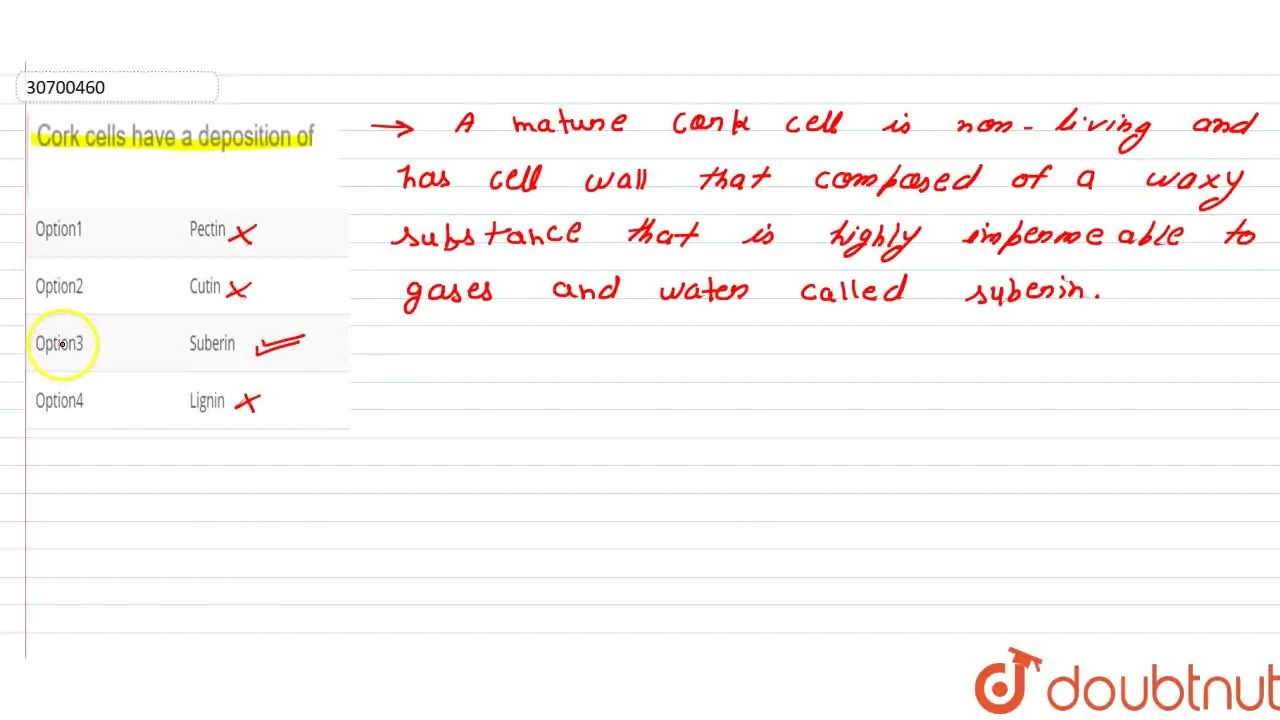 30700460
Cork cells have a deposition of
Option1 Pectin
Option2 Cutin
Option3 Suberin
Option4 Lignin
→ A mature cork cell is non-living and
has cell wall that composed of a waxy
substance that is highly impermeable to
gases and water called suberin.
doubtnut